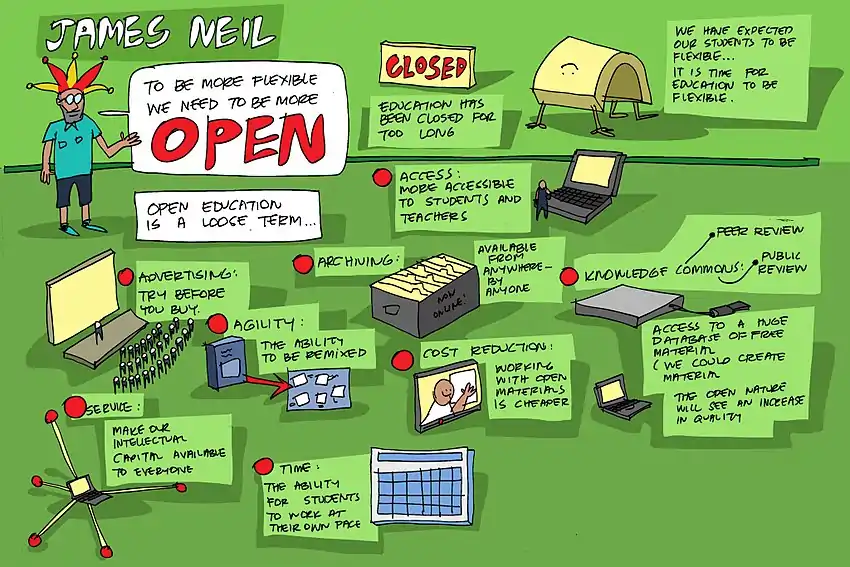 JAMES NEIL
TO BE MORE FLEXIBLE
WE NEED TO BE MORE
OPEN
OPEN EDUCATION
IS A LOOSE TERM...
CLOSED
EDUCATION HAS
BEEN CLOSED FOR
TOO LONG
WE HAVE EXPECTED
OUR STUDENTS TO BE
FLEXIBLE...
IT IS TIME FOR
EDUCATION TO BE
FLEXIBLE.
ACCESS:
MORE ACCESSIBLE
TO STUDENTS AND
TEACHERS
ADVERTISING:
TRY BEFORE
YOU BUY.
ARCHIVING:
AVAILABLE
FROM
ANYWHERE-
BY
ANYONE
NOW
ONLINE!
KNOWLEDGE COMMONS:
PEER REVIEW
PUBLIC
REVIEW
ACCESS TO A HUGE
DATABASE OF FREE
MATERIAL
(WE COULD CREATE
MATERIAL
THE OPEN NATURE
WILL SEE AN INCREASE
IN QUALITY
AGILITY:
THE ABILITY
TO BE REMIXED
COST REDUCTION:
WORKING
WITH OPEN
MATERIALS
IS CHEAPER
SERVICE:
MAKE OUR
INTELLECTUAL
CAPITAL AVAILABLE
TO EVERYONE
TIME:
THE ABILITY
FOR STUDENTS
TO WORK AT
THEIR OWN PACE